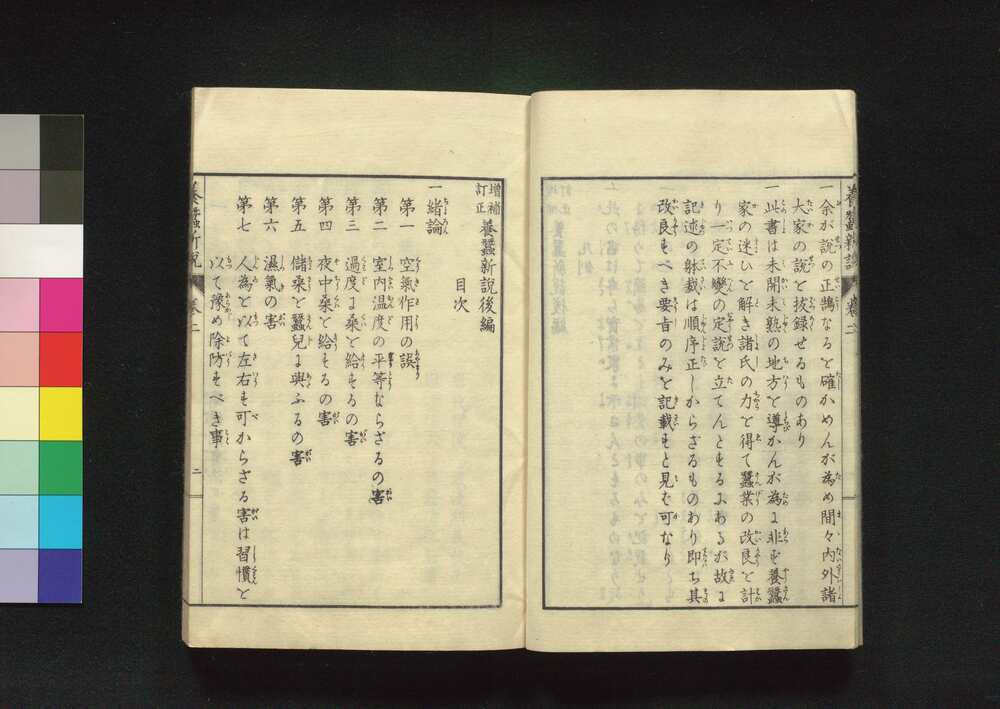 一余が説の正鵠なるを確かめんが為め間々內外諸
大家の説を抜録せるものあり
一此書は未開未熟の地方を導かんが為に非ず養蠶
家の迷ひを解き諸氏の力を得て蠶業の改良を計
り一定不變の定説を立てんとするにあるが故に
記述の躰裁は順序正しからざるものあり即ち其
改良すべき要旨のみを記載すと見て可なり
增補訂正 養蠶新說後編
目次
一緒論
第一 空氣作用の誤
第二 室內溫度の平等ならざるの害
第三 過度に桑を給するの害
第四 夜中桑を給するの害
第五 儲桑を蠶兒に與ふるの害
第六 濕氣の害
第七 人為を以て左右す可からざる害は習慣を
以て豫め除防すべき事
養蠶新說 卷二
二